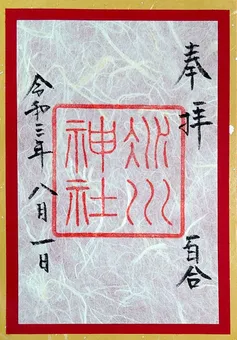 奉拝
百合
氷川
神社
令和三年 八月一日